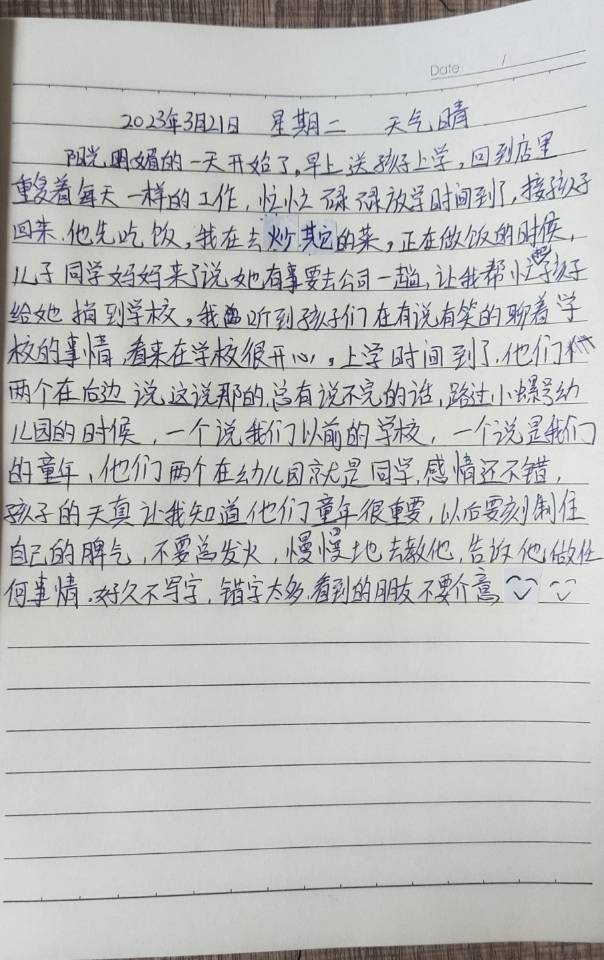 Date: /
2023年3月21日 星期二 天气晴
阳光明媚的一天开始了,早上送孩子上学,回到店里
重复着每天一样的工作,忙忙碌碌放学时间到了,接孩子
回来.他先吃饭,我在去炒其它的菜,正在做饭的时候,
儿子同学妈妈来了说她有事要去公司一趟,让我帮小孩子
给她捎到学校,我听到孩子们在有说有笑的聊着学
校的事情,看来在学校很开心,上学时间到了.他们
两个在后边说这说那的,总有说不完的话,路过小螺号幼
儿园的时候,一个说我们以前的学校,一个说是我们
的童年,他们两个在幼儿园就是同学,感情还不错,
孩子的天真让我知道他们童年很重要,以后要刻制住
自己的脾气,不要总发火,慢慢地去教他,告诉他做任
何事情.好久不写字,错字太多,看到的朋友不要介意